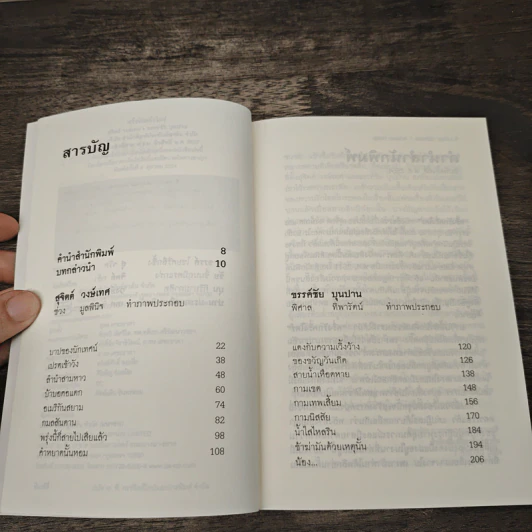 สารบัญ
คำนำสำนักพิมพ์ 8
บทกล่าวนำ 10
สุจิตต์ วงษ์เทศ
ช่วง มูลพินิจ ทำภาพประกอบ
มาปของนักเทศน์ 22
เปรตเข้าวัง 38
ลำนำสามหาว 48
ม้าบอดอแดก 60
อเมริกันสยาม 74
กมลสันดาน 82
พรุ่งนี้ก็สายไปเสียแล้ว 98
คำหยาดนั้นหอม 108
ขรรค์ชัย บุนปาน
พิศาล ทิพารัตน์ ทำภาพประกอบ
แดงกับความเวิ้งว้าง 120
ของขวัญวันเกิด 126
สายน้ำเหือดหาย 138
กามเขต 148
กามเทพเสี้ยม 156
กามนิสสัย 170
น้ำใสไหลริน 184
ข้าฆ่ามันด้วยเหตุนั้น 194
น้อง... 206